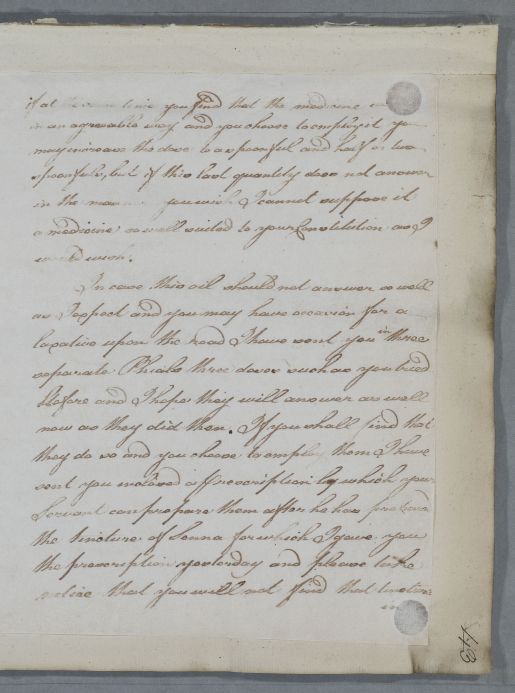 if at the same time you find that the medicine
in an agreeable way and you choose to employ it you
may increase the dose to a spoonful and half or two
spoonfuls, but if this last quantity does not answer
in the manner you wish I cannot suppose it
a medicine so well suited to your Constitution as I
would wish.
In case this oil should not answer so well
as I expect and you may have occasion for a
laxative upon the road I have sent you in three
separate Phials three doses such as you tried
before and I hope they will answer as well
now as they did then. If you shall find that
they do so and you choose to employ them I have
sent you inclosed a Prescription by which your
Servant can prepare them after he has
the tincture of Senna for which I gave you
the prescription yesterday and please take
notice that you will not find that tincture
43